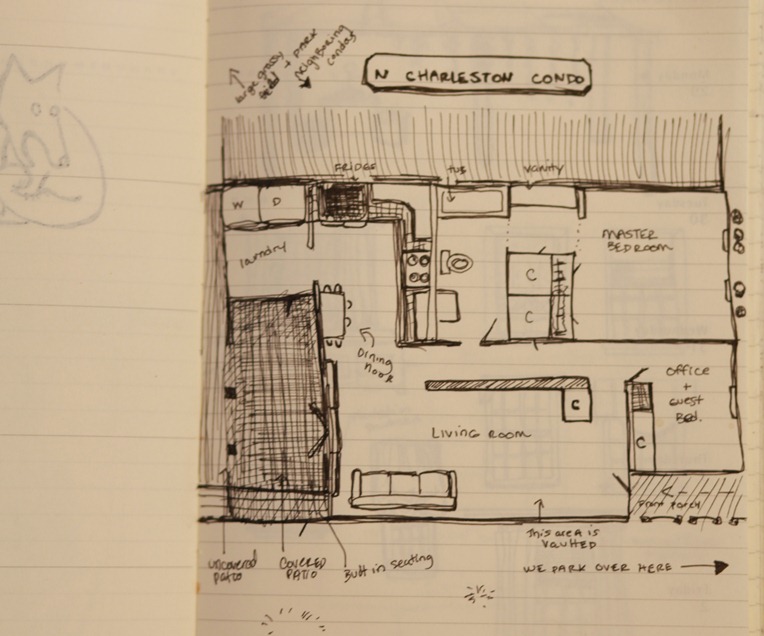 large grassy
field + park
neighboring
condos
N CHARLESTON CONDO
FRIDGE
TUB
VANITY
W D
laundry
MASTER
BEDROOM
C
C
DINING
NOOK
OFFICE
+
GUEST
BED.
C
C
LIVING ROOM
FRONT PORCH
THIS AREA IS
VAULTED
uncovered
patio
COVERED
PATIO
Built in seating
WE PARK OVER HERE